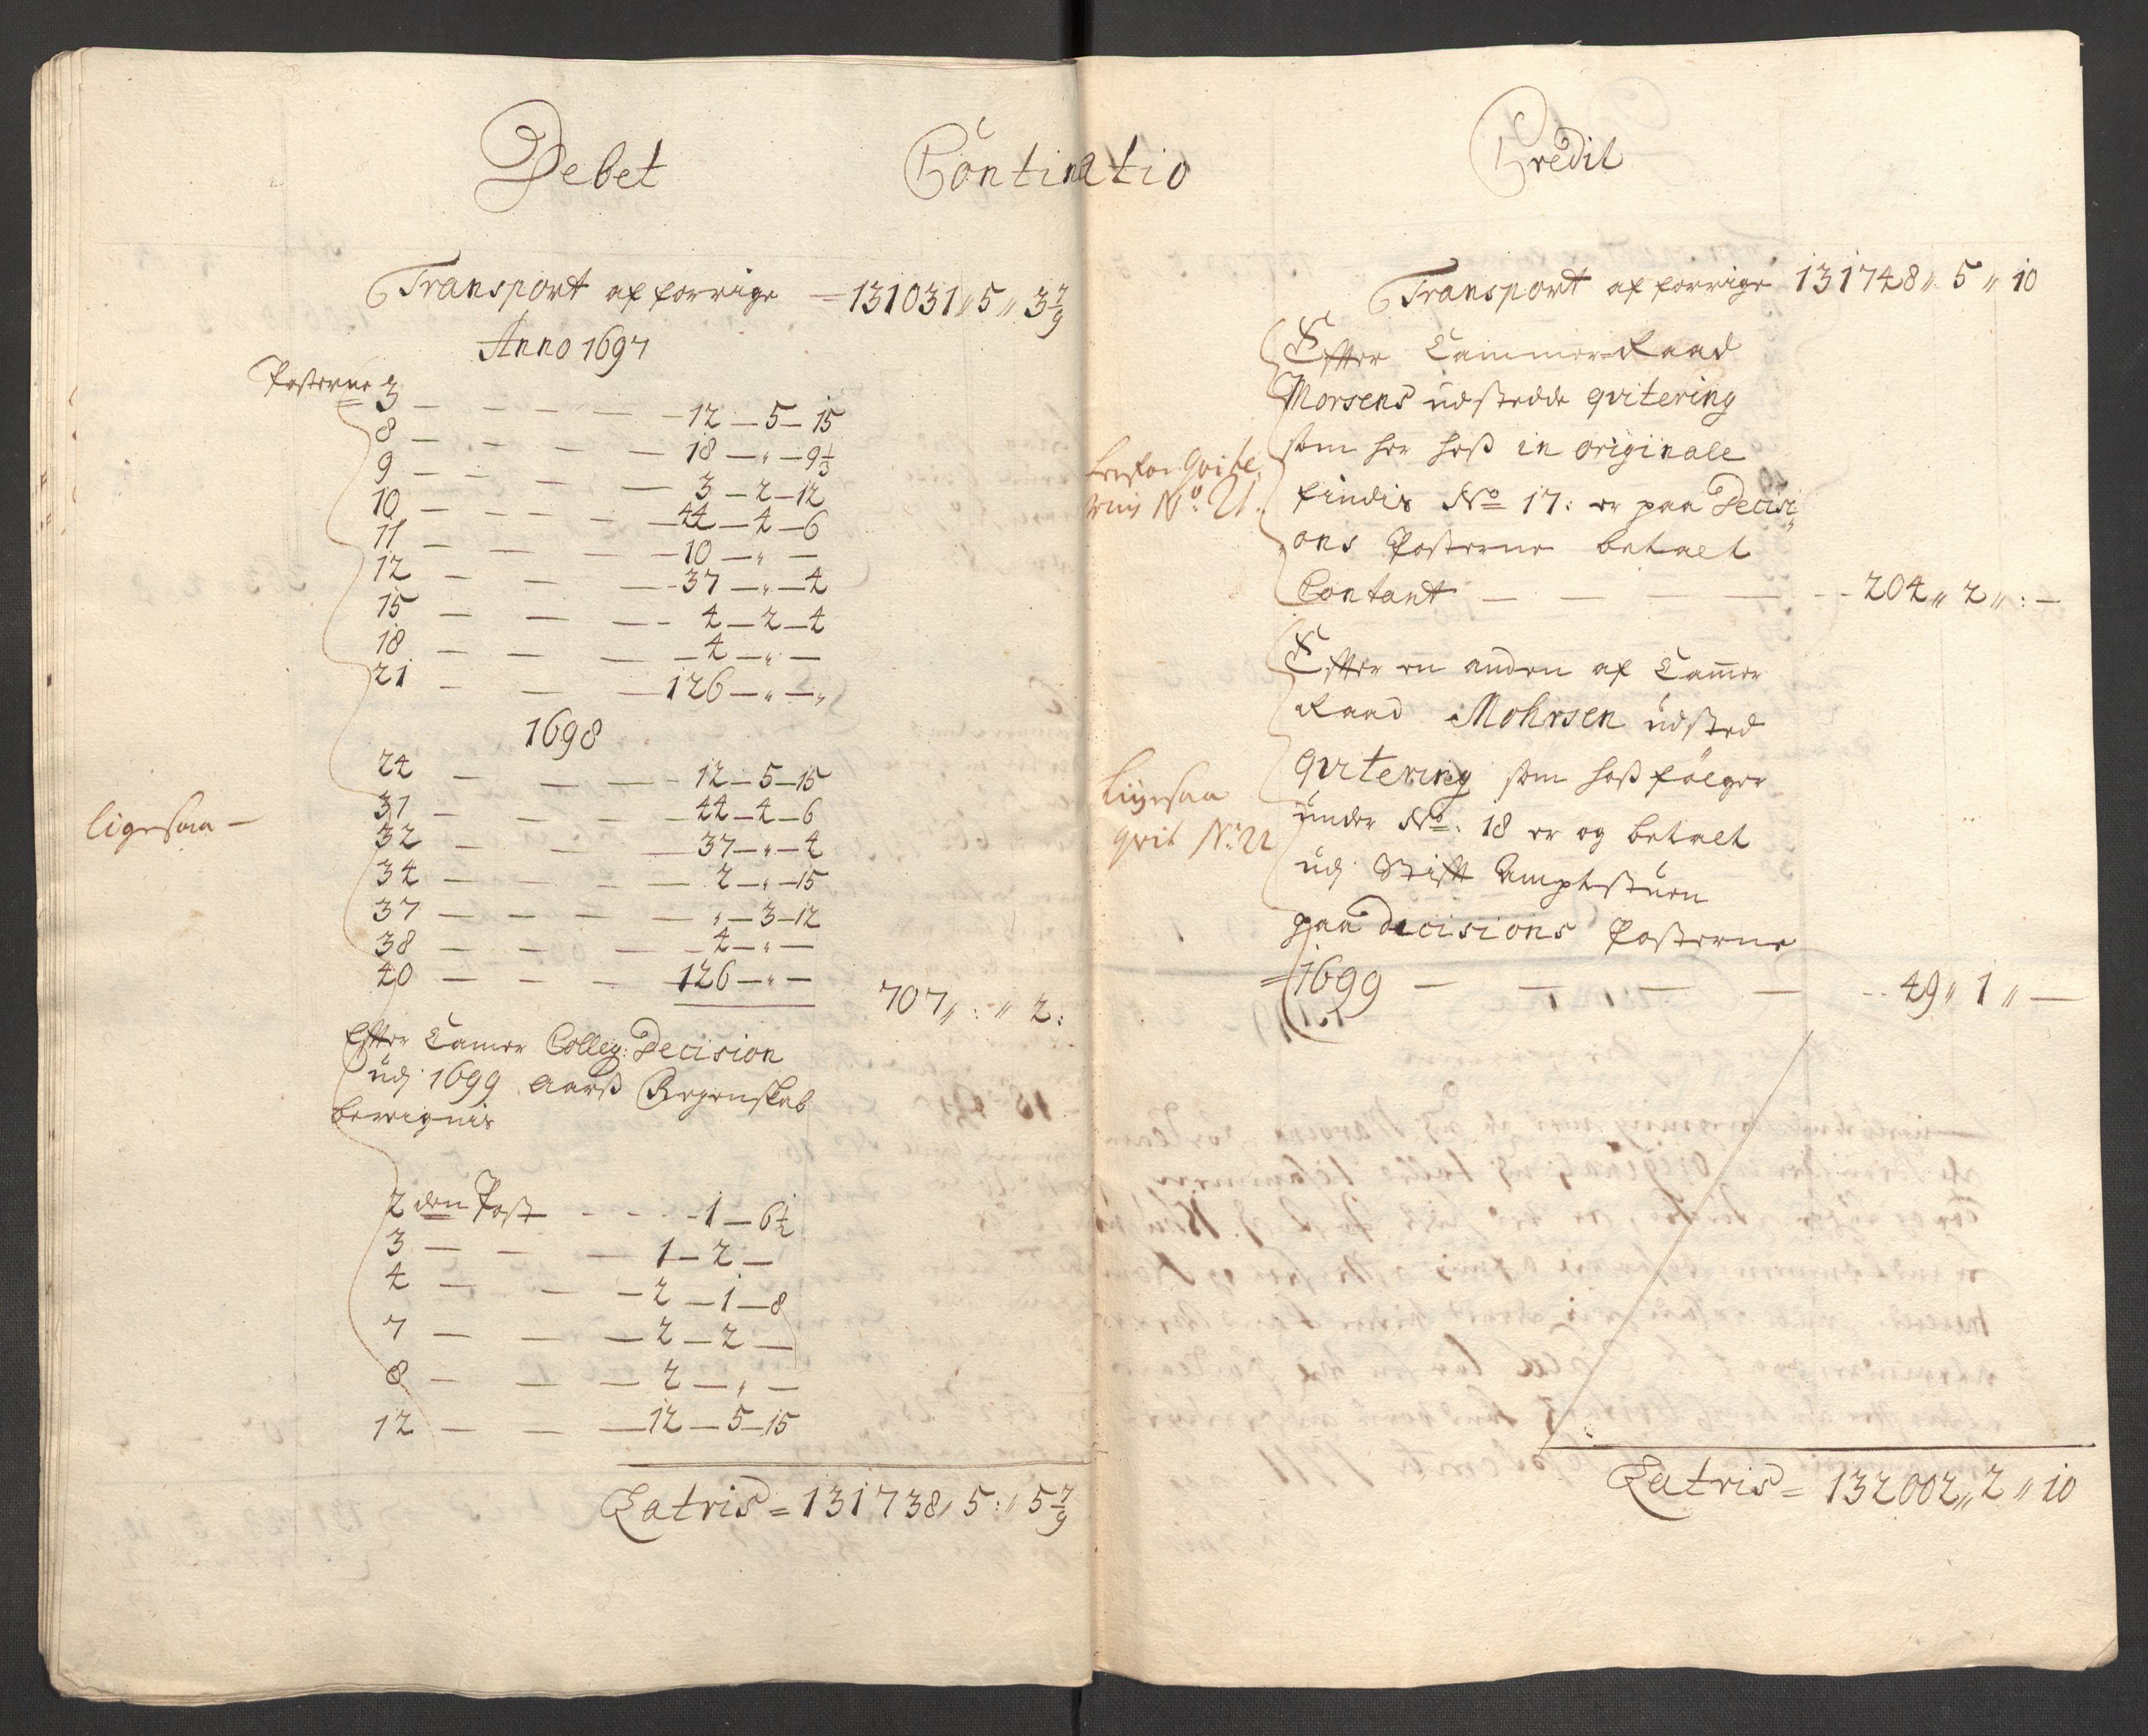 Debet
Continatio
Transport af forrige = 131031 „ 5 „ 3 7/9
Anno 1697
Posterne 3 — — — — — 12 — 5 — 15
8 — — — — 18 — „ — 9 1/3
9 — — — — 3 — 2 — 12
10 — — — — 44 — 4 — 6
11 — — — — 10 — „ —
12 — — — 37 — „ — 4
15 — — — 4 — 2 — 4
18 — — — 4 — „ —
21 — — — 126 — „ — „
1698
24 — — — 12 — 5 — 15
31 — — — 44 — 4 — 6
ligesaa —
32 — — — 37 — „ — 4
34 — — — 2 — „ — 15
37 — — — — „ — 3 — 12
38 — — — 4 — „ —
40 — — — 126 — „ —
707 „ : „ 2 :
Efter Camer Colleg: Decision
udj 1699 Aarß Regenskab
berregnis
2 den Post - - - 1 — 6 1/2
3 — — — 1 — 2 —
4 — — — 2 — 1 — 8
7 — — — 2 — 2 —
8 — — — 2 — „ —
12 — — — 12 — 5 — 15
Latris = 131738 „ 5 : „ 5 7/9
Credit
Transport af forrige 131748 „ 5 „ 10
Efter Cammer-Raad
Morsens udstedde qvitering
som her hoß in originale
findis No 17: er paa Decisi„
ons Posterne betalt
Contant — — — — - - 204 „ 2 „ : —
No. 21.
Efter en anden af Cammer
Raad Mohrsen udsted
qvitering som hoß følger
under No: 18 er og betalt
udj Stift Amptstuen
paa decisions Posterne
= 1699 — — — — - - 49 „ 1 „ —
ligesaa
qvit No. 22
Latris = 132002 „ 2 „ 10